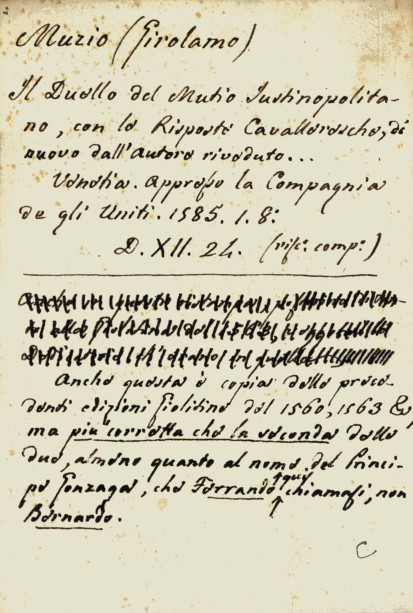 Muzio (Girolamo)
Il Duello del Mutio Justinopolita-
no, con le Risposte Cavalleresche, di
nuovo dall'Autore riveduto...
Venetia. Appresso la Compagnia
de gli Uniti. 1585. 1. 8º
D. XII. 24. (risc. comp.)
Anche questa è copia delle prece-
denti edizioni Giolitine del 1560, 1563
ma più corretta che la seconda delle
due, almeno quanto al nome del Princi-
pe Gonzaga, che Ferrando qui chiamasi, non
Bernardo.
C